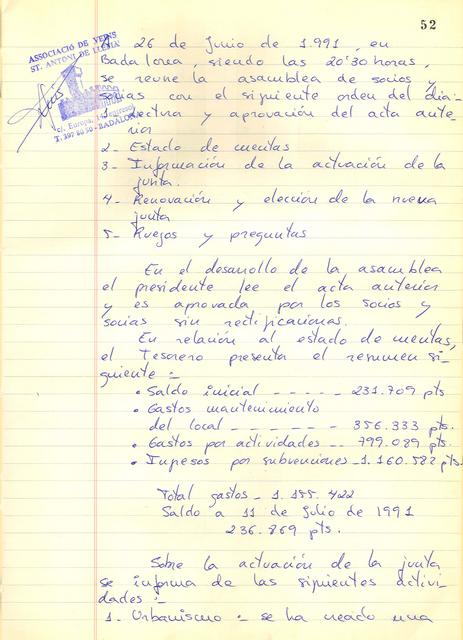 52
ASSOCIACIÓ DE VEINS
ST. ANTONI DE LLEFIÀ
c/. Europa,
T. 397 80 50 - BADALONA
A 26 de Junio de 1.991, en
Badalona, siendo las 20'30 horas,
se reune la asamblea de socios y
socias con el siguiente orden del dia:
1- Lectura y aprovación del acta ante-
rior
2- Estado de cuentas
3- Información de la actuación de la
junta.
4- Renovación y elección de la nueva
junta
5- Ruejos y preguntas
En el desarrollo de la asamblea
el presidente lee el acta anterior
y es aprovada por los socios y
socias sin rectificaciones.
En relación al estado de cuentas,
el Tesorero presenta el resumen si-
guiente :-
• Saldo inicial - - - - - 231.709 pts
• Gastos mantenimiento
del local - - - - - - 356.333 pts.
• Gastos por actividades -- 799.089 pts.
• Ingresos por subvenciones - 1.160.582 pts
Total gastos - 1.155.422
Saldo a 11 de Julio de 1991
236.869 pts.
Sobre la actuación de la junta
se informa de las siguientes activi-
dades :-
1- Urbanismo :- se ha creado una